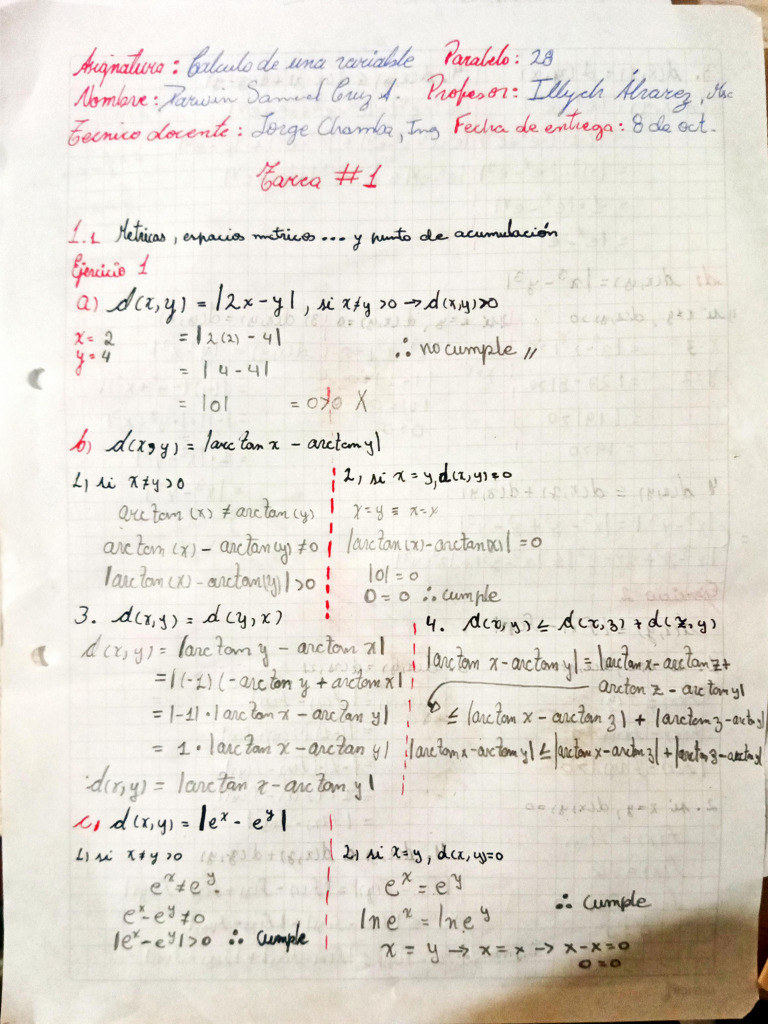 Asignatura: Calculo de una variable Paralelo: 28
Nombre: Darwin Samuel Cruz A. Profesor: Illych Álvarez, Msc
Tecnico docente: Jorge Chamba, Ing Fecha de entrega: 8 de oct.
Tarea #1
1.1 Metricas, espacios metricos... y punto de acumulación
Ejercicio 1
a) d(x,y) = |2x-y|, si x≠y >0 → d(x,y)>0
x= 2 = |2(2) - 4|
y= 4 = |4-4|
∴ no cumple //
= |0| = 0>0 X
b) d(x,y) = |arctan x - arctan y|
1) si x≠y>0
arctan (x) ≠ arctan (y)
arctan (x) - arctan(y) ≠0
|arctan (x) - arctan(y)| >0
2, si x = y, d(x,y)=0
x=y ≡ x=x
|arctan(x)-arctan(x)| = 0
|0| = 0
0 = 0 ∴ cumple
3. d(x,y) = d(y,x)
d(x,y) = |arctan y - arctan x|
= |(-1) (-arctan y + arctan x|
= |-1| · |arctan x - arctan y|
= 1 · |arctan x - arctan y|
d(x,y) = |arctan x - arctan y|
4. d(x,y) ≤ d(x,z) + d(z,y)
|arctan x-arctan y| = |arctan x-arctan z+
arctan z - arctan y|
≤ |arctan x - arctan z| + |arctan z - arctan y|
|arctan x-arctan y| ≤ |arctan x-arctan z| + |arctan z-arctan y|
c) d(x,y) = |e^x - e^y|
1) si x≠y >0
e^x ≠ e^y
e^x-e^y ≠0
|e^x-e^y| >0 ∴ cumple
2) si x=y, d(x,y)=0
e^x = e^y
ln e^x = ln e^y
∴ cumple
x = y → x = x → x-x=0
0=0